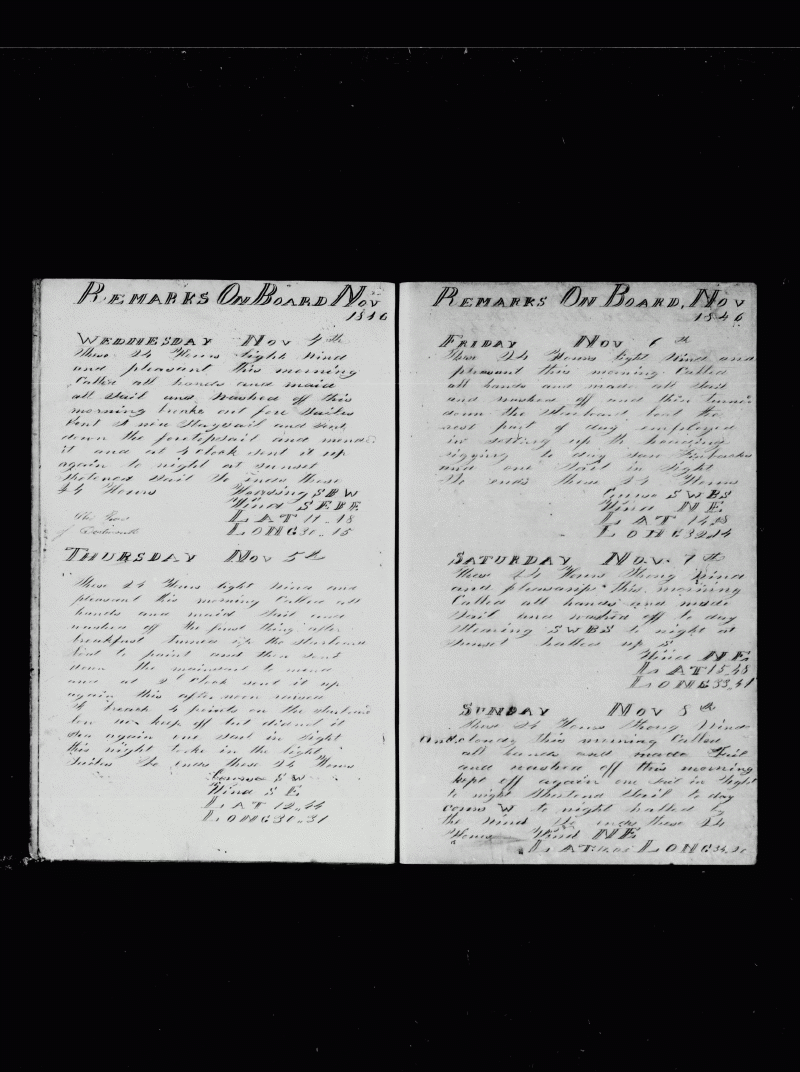 REMARKS ON BOARD NOV
1846
WEDNESDAY NOV 4th
These 24 Hours light Wind
and pleasant this morning
Called all hands and maid
all Sail and Washed off this
morning broake out fore Sailes
bent a new Staysail and Sent
down the foretopsail and mend
it and at 4 Clock sent it up
again to night at sunset
Shortened Sail So ends these
24 Hours Heading SBW
Wind SEBE
LAT 11..18
LONG 31..15
THURSDAY NOV 5th
These 24 Hours light Wind and
pleasant this morning Called all
hands and maid Sail and
washed off the first thing after
breakfast turned up the starboard
boat to paint and then Sent
down the mainsail to mend
and at 2 Clock sent it up
again this afternoon raised
a breach 4 points on the starboard
bow we keep off but did not it
See again one sail in Sight
this night tooke in the light
Sailes So ends these 24 Hours
Course SW
Wind S E
LAT 12..44
LONG 31..31
REMARKS ON BOARD, NOV
1846
FRIDAY NOV 6th
These 24 Hours light Wind and
pleasant this morning Called
all hands and made all Sail
and washed off and then turned
down the Starboard boat the
rest part of day employed
in setting up the housing
rigging to day saw Finbacks
and one Sail in Sight
So ends these 24 Hours
Course SWBS
Wind NE
LAT 14..38
LONG 32..14
SATURDAY NOV. 7th
These 24 Hours Strong Wind
and pleasant this morning
Called all hands and made
Sail and washed off to day
Stearing SWBS to night at
Sunset halled up S
Wind NE
LAT 15..48
LONG 33..41
SUNDAY NOV 8th
These 24 Hours Strong Wind
and cloudy this morning Called
all hands and made Sail
and washed off this morning
kept off again one Sail in Sight
to night Shortend Sail to day
course W to night halled by
the Wind So ends these 24
Hours Wind NE
LAT LONG 34..